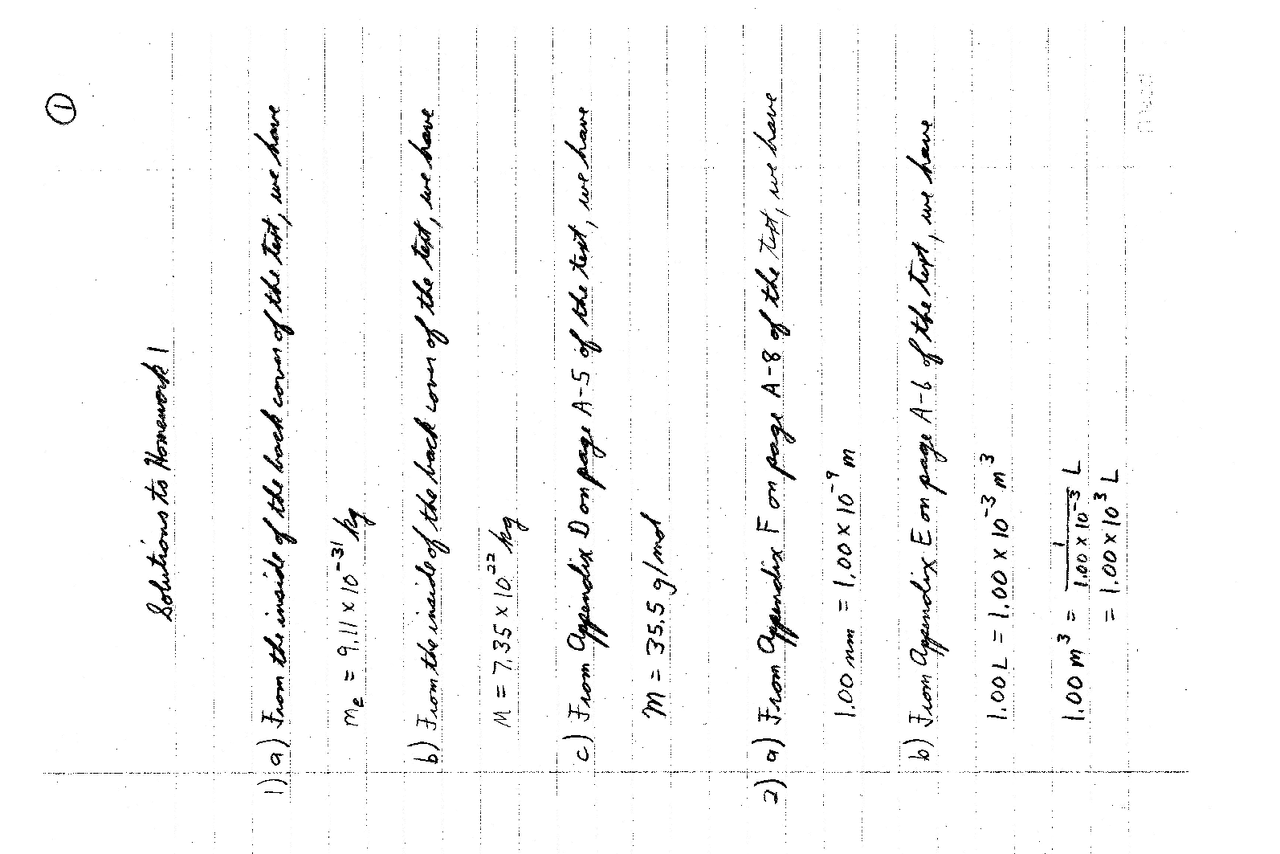 ①
Solutions to Homework 1
1) a) From the inside of the back cover of the text, we have
mₑ = 9.11 × 10⁻³¹ kg
b) From the inside of the back cover of the text, we have
M = 7.35 × 10²² kg
c) From Appendix D on page A-5 of the text, we have
M = 35.5 g/mol
2) a) From Appendix F on page A-8 of the text, we have
1.00 nm = 1.00 × 10⁻⁹ m
b) From Appendix E on page A-6 of the text, we have
1.00 L = 1.00 × 10⁻³ m³
1.00 m³ = 1/(1.00 × 10⁻³) L
= 1.00 × 10³ L